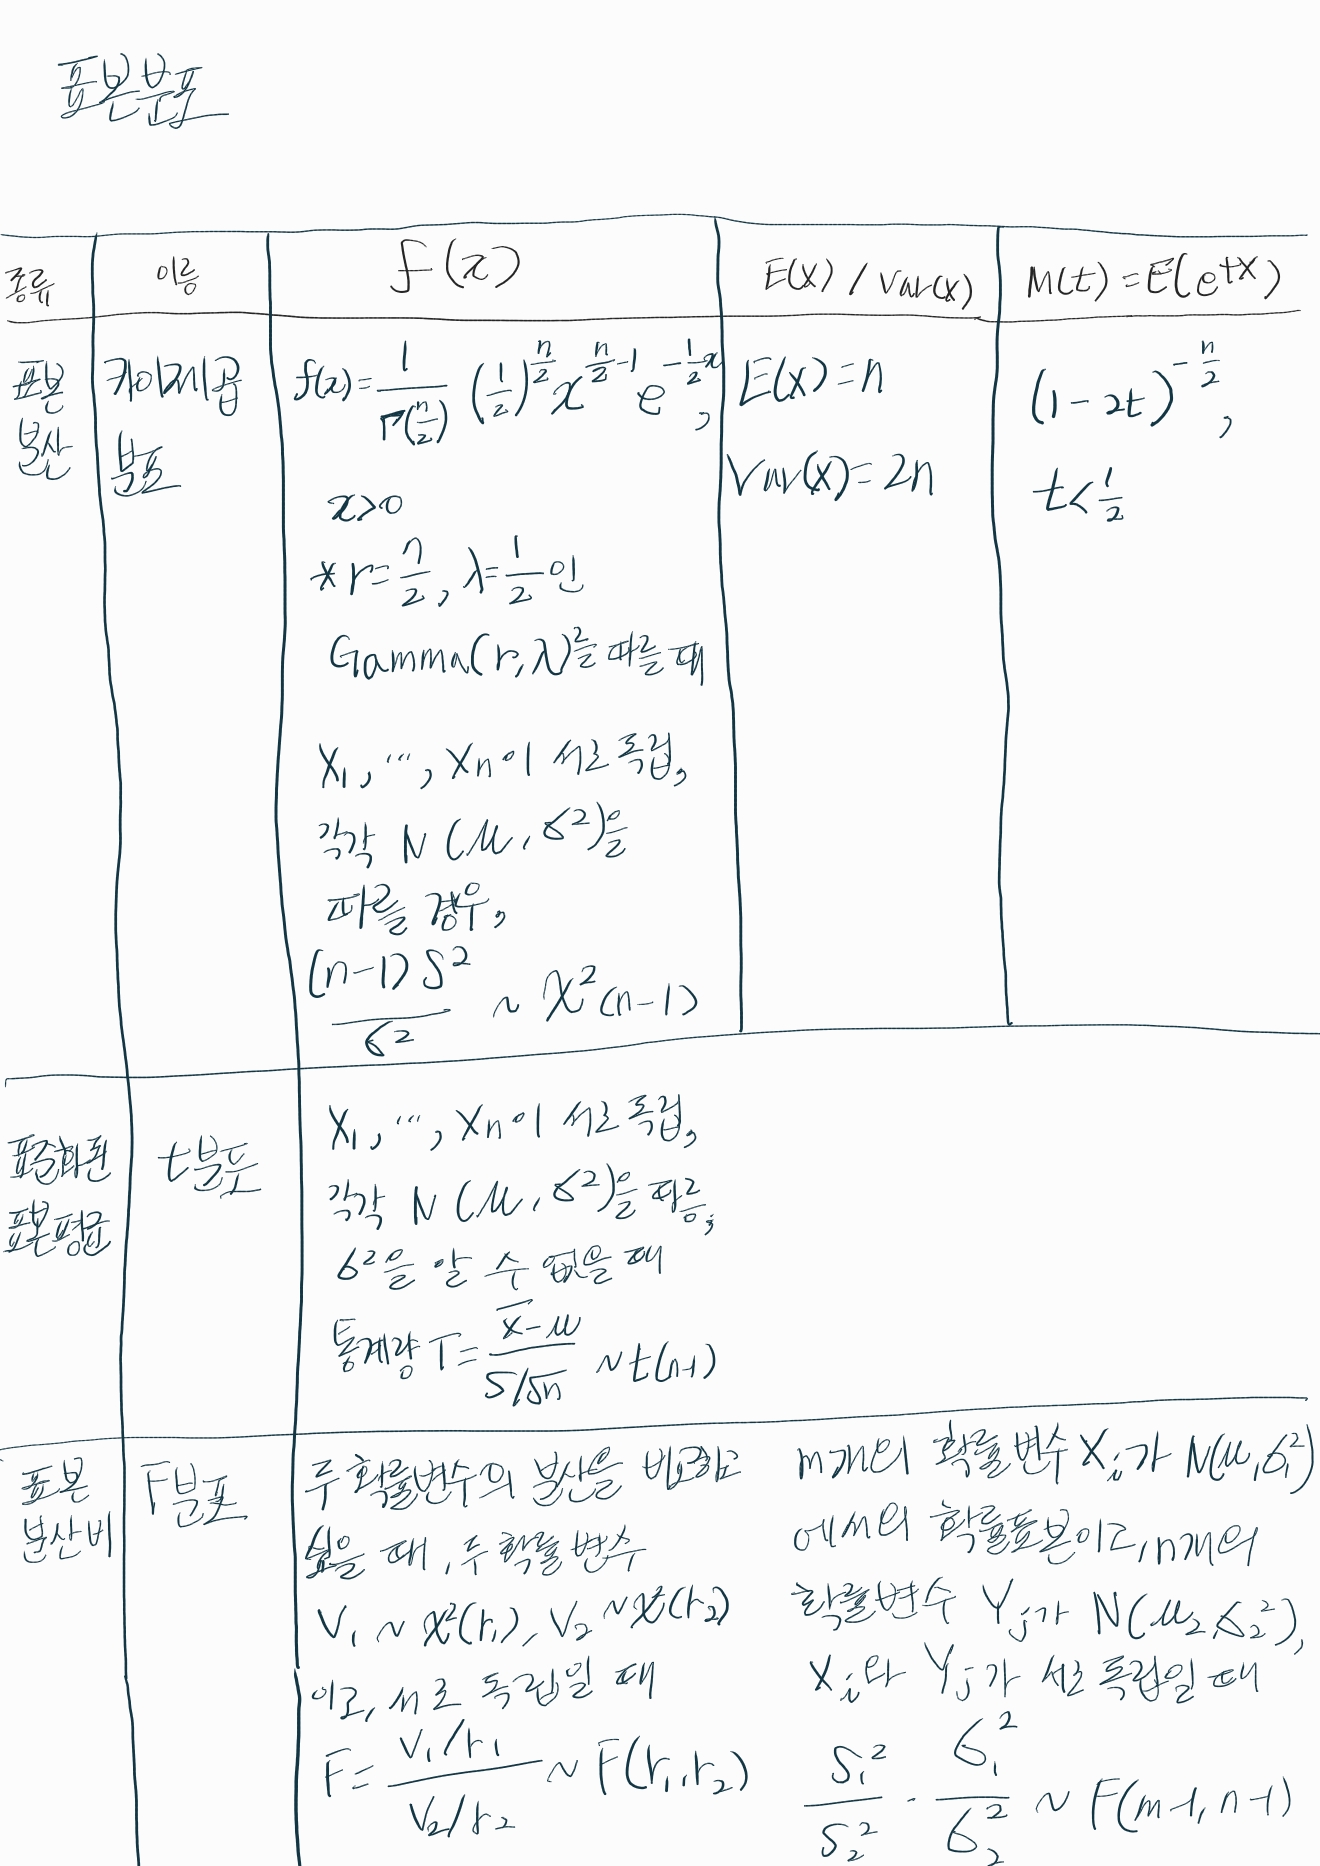 표본분포
종류 이름 f(x) E(X) / Var(X) M(t) = E(e^{tX})
표본분산
카이제곱분포
f(x) = \frac{1}{Γ(\frac{n}{2})} (\frac{1}{2})^{\frac{n}{2}} x^{\frac{n}{2}-1} e^{-\frac{1}{2}x},
x>0
* r = \frac{n}{2}, λ = \frac{1}{2}인
Gamma(r, λ)를 따를 때
X₁, ⋯, Xn이 서로 독립,
각각 N(μ, σ²)을
따를 경우,
\frac{(n-1)S²}{σ²} ~ χ²(n-1)
E(X) = n
Var(X) = 2n
(1-2t)^{-\frac{n}{2}},
t < \frac{1}{2}
표준화된
표본평균
t분포
X₁, ⋯, Xn이 서로 독립,
각각 N(μ, σ²)을 따름,
σ²을 알 수 없을 때
통계량 T = \frac{\overline{X}-μ}{S/√n} ~ t(n-1)
표본
분산비
F분포
두 확률변수의 분산을 비교하고
싶을 때, 두 확률변수
V₁ ~ χ²(r₁), V₂ ~ χ²(r₂)
이고, 서로 독립일 때
F = \frac{V₁/r₁}{V₂/r₂} ~ F(r₁, r₂)
m개의 확률변수 Xi가 N(μ₁, σ₁²)
에서의 확률표본이고, n개의
확률변수 Yj가 N(μ₂, σ₂²),
Xi와 Yj가 서로 독립일 때
\frac{S₁²}{S₂²} · \frac{σ₁²}{σ₂²} ~ F(m-1, n-1)